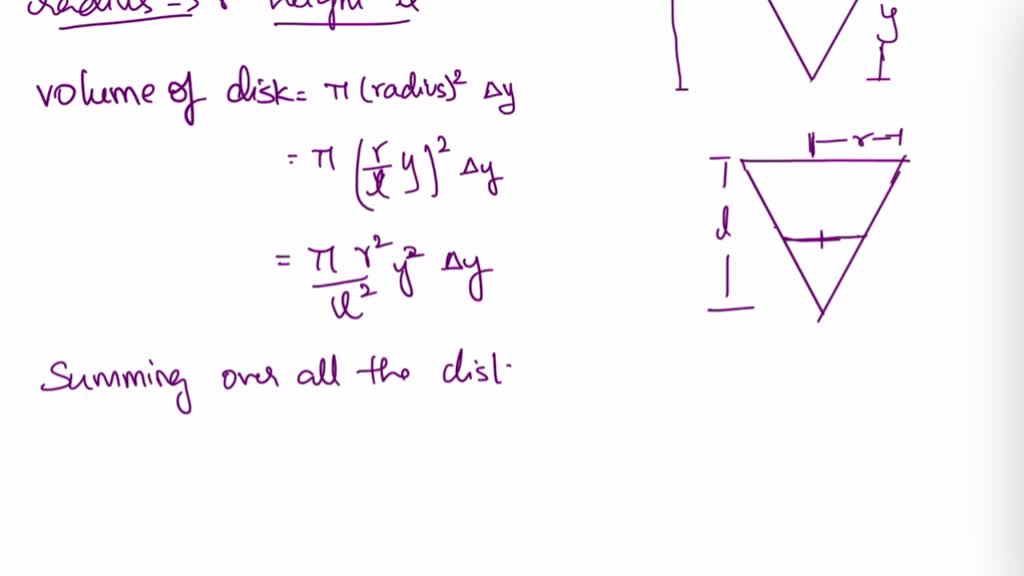 radius → r height l
volume of disk = π (radius)² Δy
= π (r/l y)² Δy
= π r²/l² y² Δy
Summing over all the disl.
y
r
l